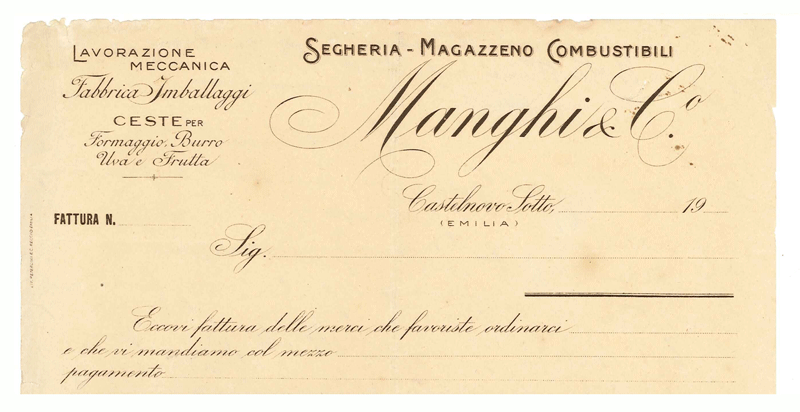 LAVORAZIONE
MECCANICA
Fabbrica Imballaggi
CESTE PER
Formaggio, Burro
Uva e Frutta
SEGHERIA - MAGAZZENO COMBUSTIBILI
Manghi & C.o
Castelnovo Sotto, 19
(EMILIA)
FATTURA N.
Sig.
Eccovi fattura delle merci che favoriste ordinarci
e che vi mandiamo col mezzo
pagamento